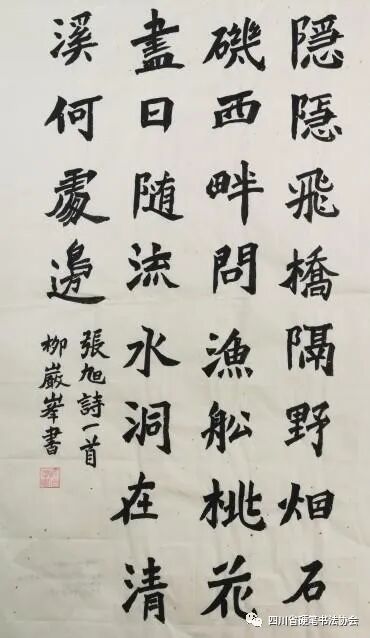 隱隱飛橋隔野烟石
磯西畔問漁舩桃花
盡日随流水洞在清
溪何處邊
張旭詩一首
柳嚴峯書
四川省硬笔书法协会